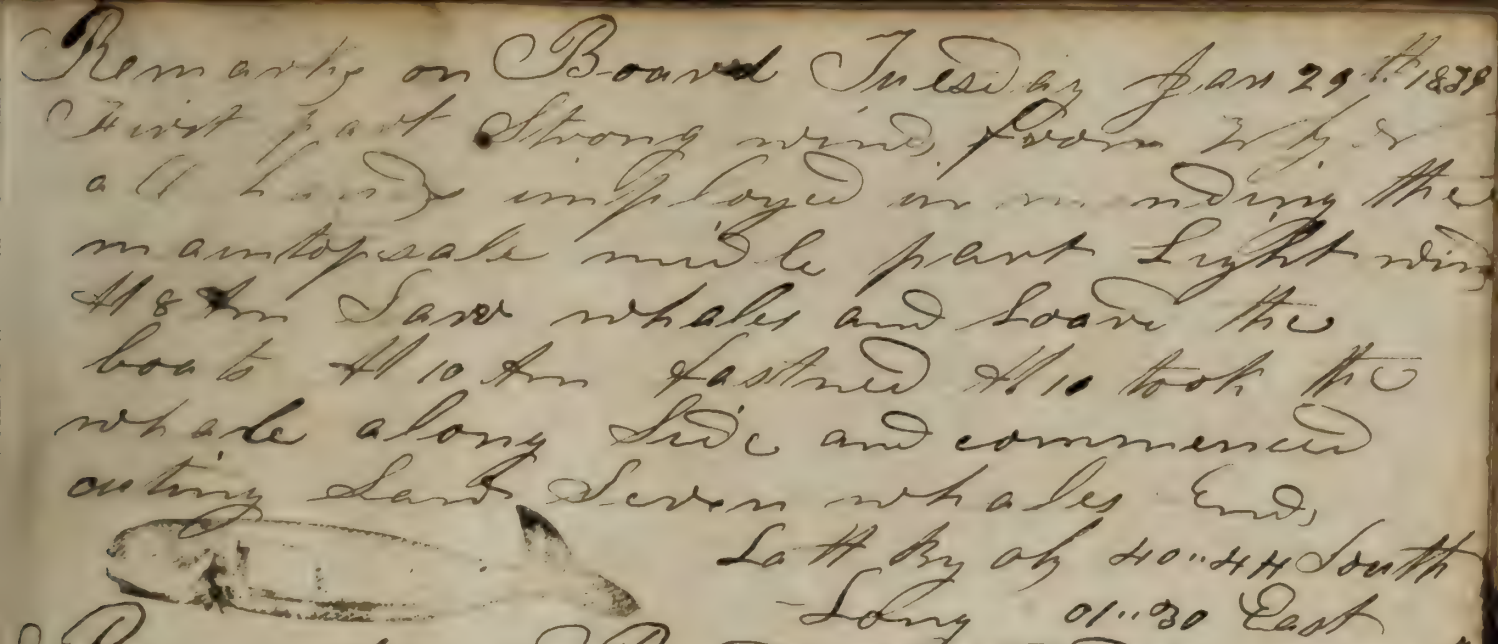 Remarks on Board Tuesday Jan 29th 1839
First part Strong winds from W by
all hands imployed in mending the
maintopsale midle part Light wind
At 8 Am Saw whales and Loard the
boats At 10 Am fastned At 10 took the
whale along Side and commenced
cuting Saw Seven whales Ends
Latt By ob 40..44 South
Long 01..30 East